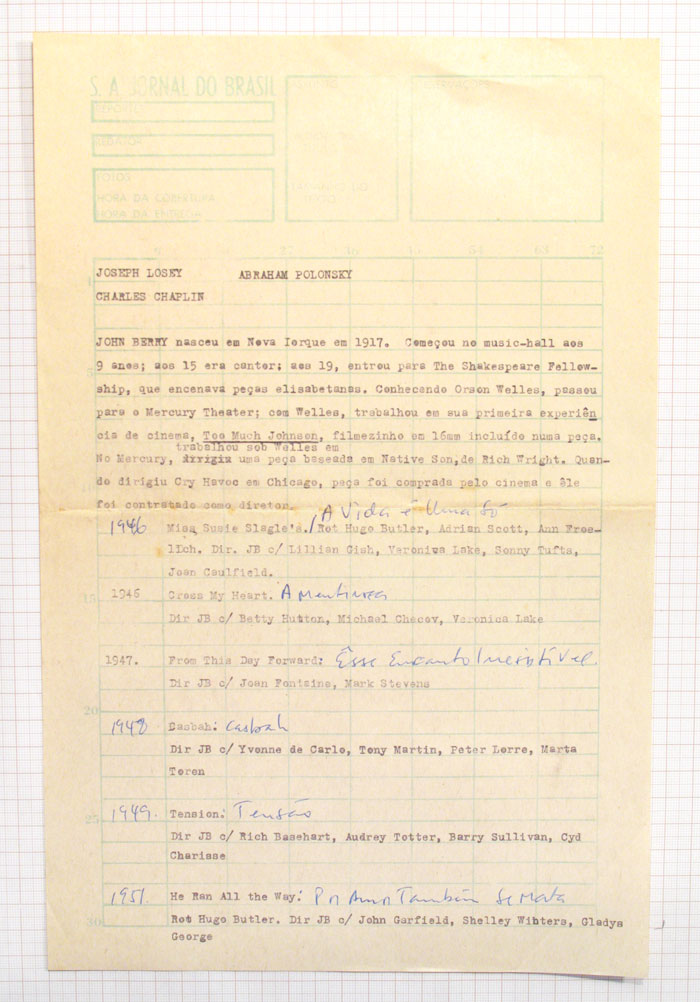 S. A. JORNAL DO BRASIL
REPÓRTER
REDATOR
FOTOS
HORA DA COBERTURA
HORA DA ENTREGA
27 54 63 72
JOSEPH LOSEY ABRAHAM POLONSKY
CHARLES CHAPLIN
JOHN BERRY nasceu em Nova Iorque em 1917. Começou no music-hall aos
9 anos; aos 15 era cantor; aos 19, entrou para The Shakespeare Fellow-
ship, que encenava peças elisabetanas. Conhecendo Orson Welles, passou
para o Mercury Theater; com Welles, trabalhou em sua primeira experiên
cia de cinema, Too Much Johnson, filmezinho em 16mm incluído numa peça.
trabalhou sob Welles em
No Mercury, dirigiu uma peça baseada em Native Son,de Rich Wright. Quan-
do dirigiu Cry Havoc em Chicago, peça foi comprada pelo cinema e êle
foi contratado como diretor.
1946 Miss Susie Slagle's./ A Vida é Uma Só
Rot Hugo Butler, Adrian Scott, Ann Froe-
lich. Dir. JB c/ Lillian Gish, Veronica Lake, Sonny Tufts,
Joan Caulfield.
15 1946 Cross My Heart. A mentirosa
Dir JB c/ Betty Hutton, Michael Checov, Veronica Lake
1947. From This Day Forward: Êsse Encanto Irresistível.
Dir JB c/ Joan Fontaine, Mark Stevens
20
1948 Casbah: Casbah
Dir JB c/ Yvonne de Carlo, Tony Martin, Peter Lorre, Marta
Toren
25 1949. Tension: Tensão
Dir JB c/ Rich Basehart, Audrey Totter, Barry Sullivan, Cyd
Charisse
1951. He Ran All the Way: Por Amor Também Se Mata
30 Rot Hugo Butler. Dir JB c/ John Garfield, Shelley Winters, Gladys
George